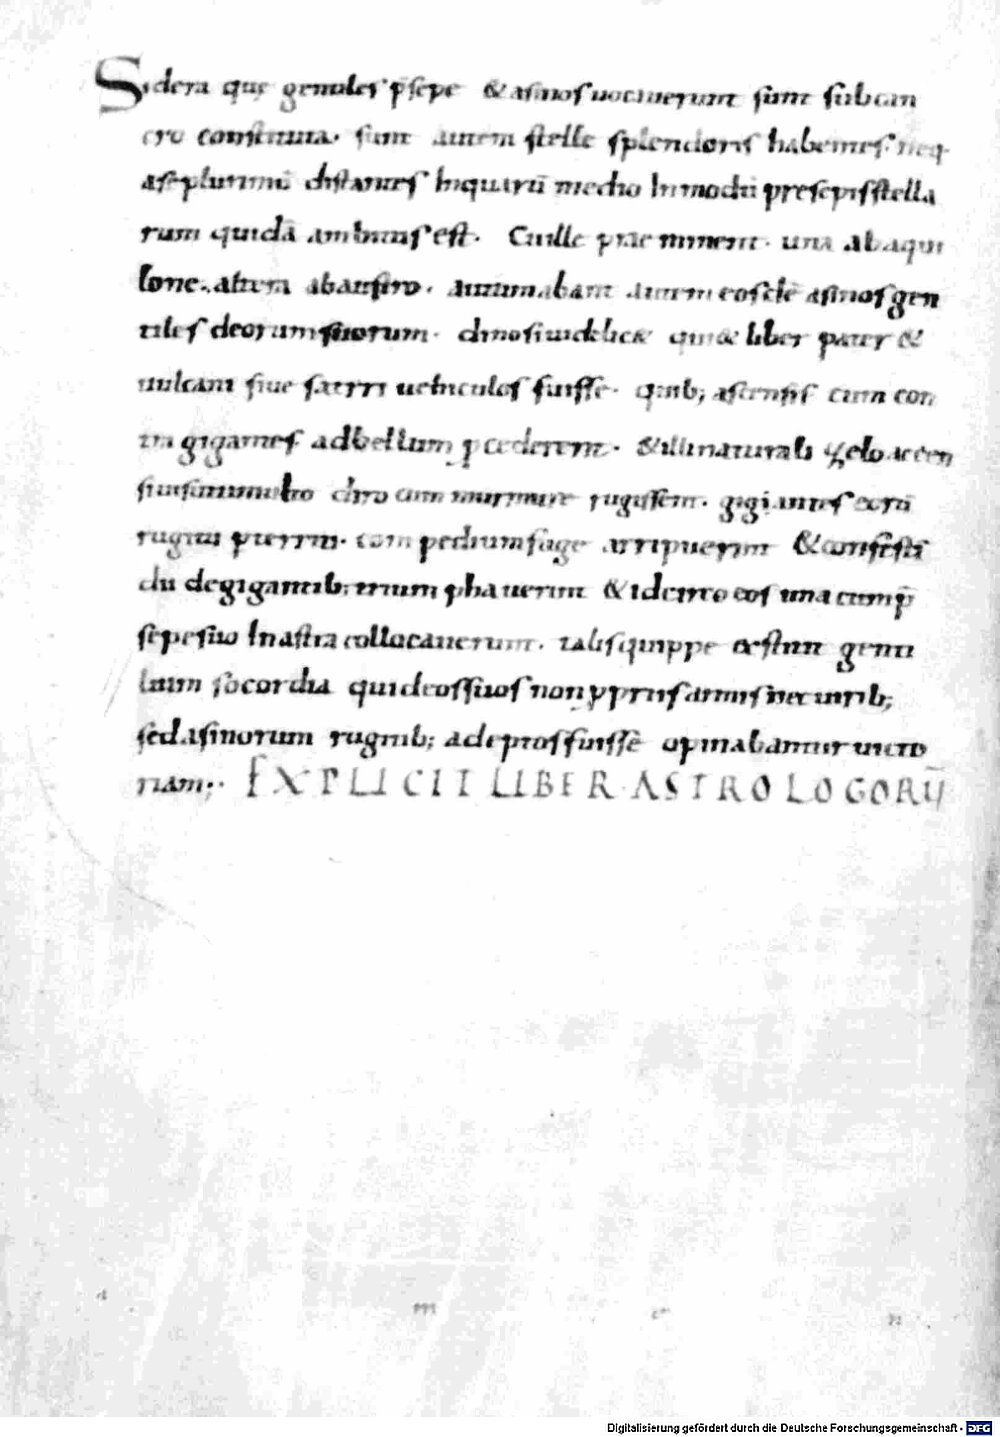 Sidera quę gentiles p̄sepe & asinos uocauerunt sunt sub can
cro constituta· sunt autem stelle splendoris habentes· neq·
a se plurimū distantes In quarū medio In modū presepis stella
rum quidā ambitus est· Cui ille prae minent· una ab aqui
lone· altera ab austro· autumabant autem eosdē asinos gen
tiles deorum suorum· duos uidelic& qui& liber pater &
uulcani siue satyri uehiculos fuisse· quib; ascensis cum con
tra gigantes ad bellum ꝓcederent· & illi naturali zelo accen
rugissent· gigantes eorū
rugitu territi· com pedium fuge arripuerunt & confesti
du de gigantib; trium phauerunt & idcirco eos una cum p̄
sepe suo In astra collocauerunt· talis quippe extitit genti
lium socordia qui deos suos non ꝓpriis armis nec uirib;
sed asinorum rugitib; adeptos fuisse opinabantur uicto
riam;· EXPLICIT LIBER ASTROLOGORŪ
Digitalisierung gefördert durch die Deutsche Forschungsgemeinschaft - DFG